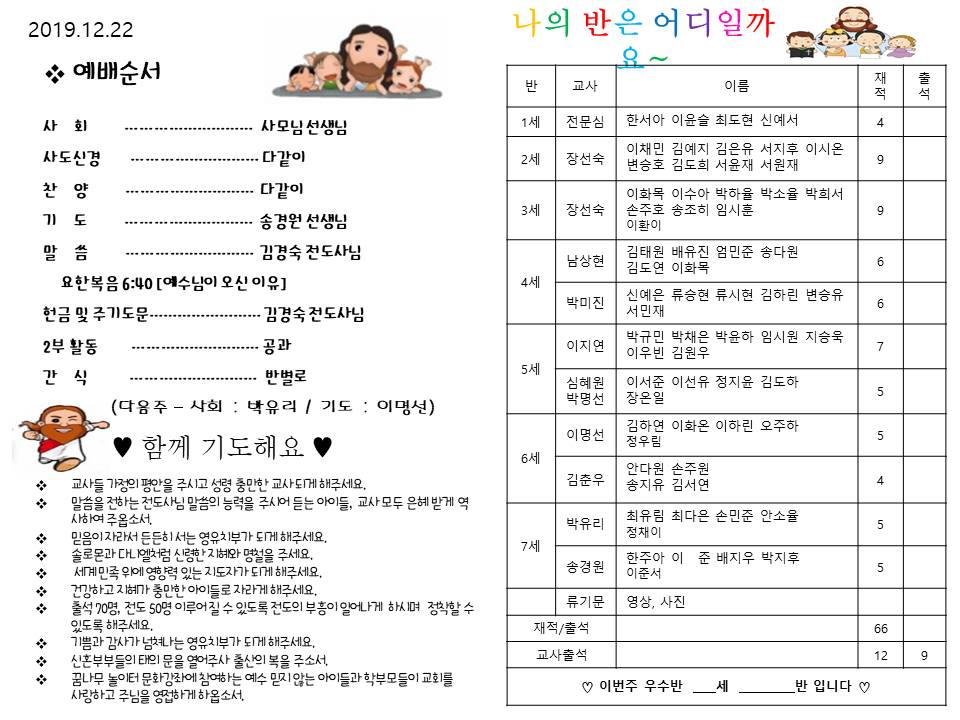 2019.12.22
❖ 예배순서
사 회 --------------------------- 사모님선생님
사도신경 --------------------------- 다같이
찬 양 --------------------------- 다같이
기 도 --------------------------- 송경원 선생님
말 씀 --------------------------- 김경숙 전도사님
요한복음 6:40 [예수님이 오신 이유]
헌금 및 주기도문----------------------- 김경숙 전도사님
2부 활동 --------------------------- 공과
간 식 --------------------------- 반별로
(다음주 – 사회 : 박유리 / 기도 : 이명선)
♥ 함께 기도해요 ♥
❖ 교사들 가정의 평안을 주시고 성령 충만한 교사 되게 해주세요.
❖ 말씀을 전하는 전도사님 말씀의 능력을 주시어 듣는 아이들, 교사 모두 은혜 받게 역
사하여 주옵소서.
❖ 믿음이 자라서 든든히 서는 영유치부가 되게 해주세요.
❖ 솔로몬과 다니엘처럼 신령한 지혜와 명철을 주세요.
❖ 세계 민족 위에 영향력 있는 지도자가 되게 해주세요.
❖ 건강하고 지혜가 충만한 아이들로 자라게 해주세요.
❖ 출석 70명, 전도 50명 이루어질 수 있도록 전도의 부흥이 일어나게 하시며 정착할 수
있도록 해주세요.
❖ 기쁨과 감사가 넘쳐나는 영유치부가 되게 해주세요.
❖ 신혼부부들의 태의 문을 열어주사 출산의 복을 주소서.
❖ 꿈나무 놀이터 문화강좌에 참여하는 예수 믿지 않는 아이들과 학부모들이 교회를
사랑하고 주님을 영접하게 하옵소서.
나의 반은 어디일까
요~
반 교사 이름 재적 출석
1세 전문심 한서아 이윤슬 최도현 신예서 4
2세 장선숙 이채민 김예지 김은유 서지후 이시온
변승호 김도희 서윤재 서원재 9
3세 장선숙 이화목 이수아 박하율 박소율 박희서
손주호 송조히 임시훈
이환이 9
4세 남상현 김태원 배유진 엄민준 송다원
김도연 이화목 6
박미진 신예은 류승현 류시현 김하린 변승유
서민재 6
5세 이지연 박규민 박채은 박윤하 임시원 지승욱
이우빈 김원우 7
심혜원
박명선 이서준 이선유 정지윤 김도하
장은일 5
6세 이명선 김하연 이화온 이하린 오주하
정우림 5
김춘우 안다원 손주원
송지유 김서연 4
7세 박유리 최유림 최다은 손민준 안소율
정채이 5
송경원 한주아 이 준 배지우 박지후
이준서 5
류기문 영상, 사진
재적/출석 66
교사출석 12 9
♡ 이번주 우수반 ___세 ________반 입니다 ♡